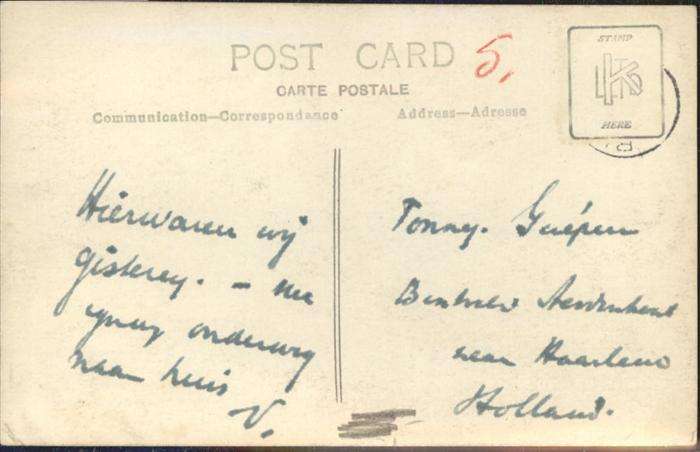 POST CARD 5.
CARTE POSTALE
Communication—Correspondance
Address—Adresse
STAMP
KLTD
HERE
Hierwaren wij
gisteren. - nu
onderweg
naar huis
V.
Tonny. Guépin
Aerdenhout
near Haarlem
Holland.